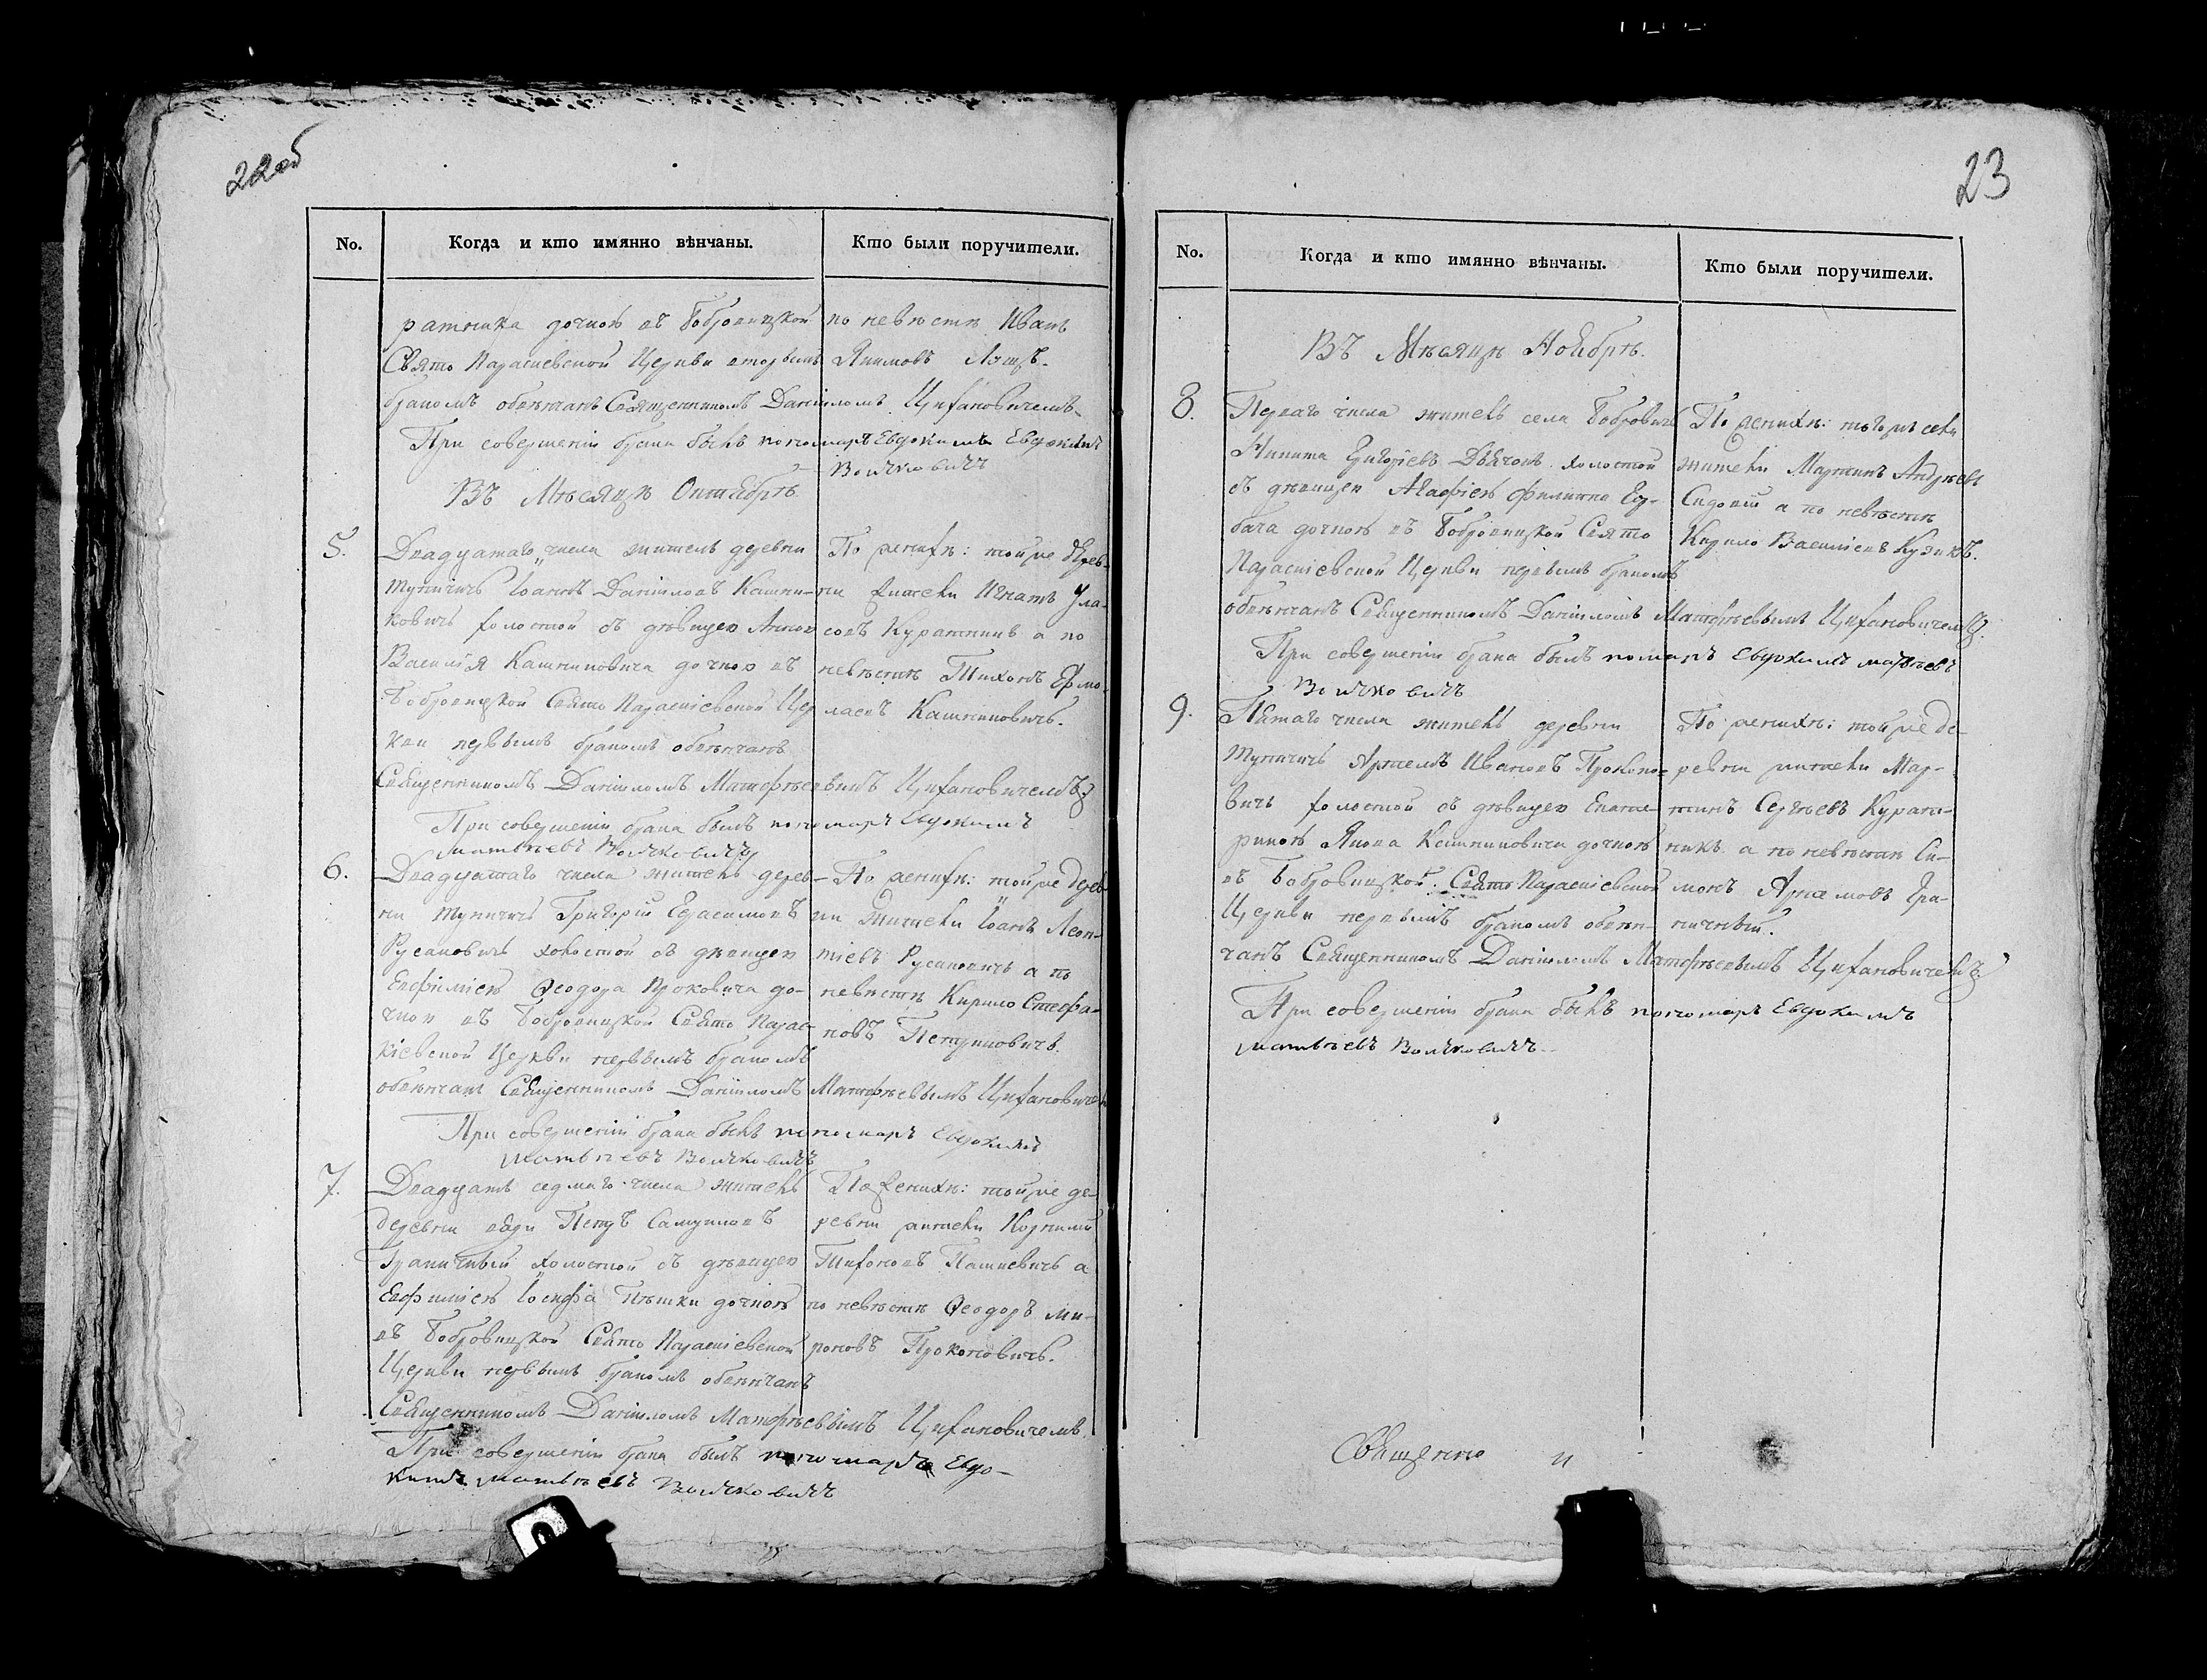 22об
No.
Когда и кто имянно вѣнчаны.
Кто были поручители.
ратника дочкою въ Бобровицкой
Свято Параскіевской Церкви вторымъ
бракомъ обвѣнчанъ Священникомъ Даніиломъ Цихановичемъ
При совершеніи брака былъ пономаръ Евдокимъ
по невѣстѣ Иванъ
Якимовъ
Волчковичъ
Въ Мѣсяцѣ Октябрѣ
5.
Двадцатаго числа житель деревни
Тупичичъ Іоаннъ Даніиловъ Кашни-
ковичъ холостой съ дѣвицею Анною
Василія Кашниковича дочкою въ
Бобровицкой Свято Параскіевской Цер
кви первымъ бракомъ обвѣнчанъ
Священникомъ Даніиломъ Матфѣевымъ Цихановичемъ
При совершеніи брака былъ пономаръ Евдокимъ
матвѣевъ Волчковичъ
По женихѣ: тойже дерев-
ни жители Игнатъ Ула-
совъ Куратникъ а по
невѣстѣ Тихонъ Ермо-
лаевъ Кашниковичъ.
6.
Двадцатаго числа житель дерев-
ни Тупичичъ Григорій Герасимовъ
Русановичъ холостой съ дѣвицею
Евфиміею Ѳеодора Проковича до-
чкою въ Бобровицкой Свято Парас-
кіевской Церкви первымъ бракомъ
обвѣнчанъ Священникомъ Даніиломъ Матфѣевымъ Цихановичем
При совершеніи брака былъ пономаръ Евдокимъ
матвѣевъ Волчковичъ
По женихѣ: тойже дерев
ни жители Іоанъ Леон-
тіевъ Русановичъ а по
невѣстѣ Кирило Стефа-
новъ Петриковичъ.
7.
Двадцать седмаго числа житель
деревни Вяди Петръ Самуиловъ
Граничный холостой съ дѣвицею
Евфиміею Іосифа Пѣшки дочкою
въ Бобровицкой Свято Параскіевской
Церкви первымъ бракомъ обвѣнчанъ
Священникомъ Даніиломъ Матфѣевымъ Цихановичемъ.
При совершеніи брака былъ пономаръ Евдо-
кимъ матвѣевъ Волчковичъ
По женихѣ: тойже де-
ревни жители Корнилій
Тихоновъ Пашкевичъ а
по невѣстѣ Ѳеодоръ Ми-
роновъ Прокоповичъ.
23
No.
Когда и кто имянно вѣнчаны.
Кто были поручители.
Въ Мѣсяцѣ Ноябрѣ.
8.
Перваго числа житель села Бобровичъ
Никита Григоріевъ Дьячокъ холостой
съ дѣвицею Агафіею Филиппа Гор-
бача дочкою въ Бобровицкой Свято
Параскіевской Церкви первымъ бракомъ
обвѣнчанъ Священникомъ Даніиломъ Матфѣевымъ Цихановичемъ.
При совершеніи брака былъ помаръ Евдокимъ матвѣевъ
Волчковичъ
По женихѣ: тогожъ села
жители Мартинъ Андреевъ
а по невѣстѣ
Кирило Василіевъ Кузикъ.
9.
Пятаго числа житель деревни
Тупичичъ Артемъ Ивановъ Прокопо-
вичъ холостой съ дѣвицею Екате-
риною Якова Кашниковича дочкою
въ Бобровицкой Свято Параскіевской
Церкви первымъ бракомъ обвѣн-
чанъ Священникомъ Даніиломъ Матфѣевымъ Цихановичемъ.
При совершеніи брака былъ пономаръ Евдокимъ
матвѣевъ Волчковичъ
По женихѣ: тойже де-
ревни жители Мар-
тинъ Сергѣевъ Курат-
никъ а по невѣстѣ Си-
монъ Артемовъ Гра-
ничный.
Священно и